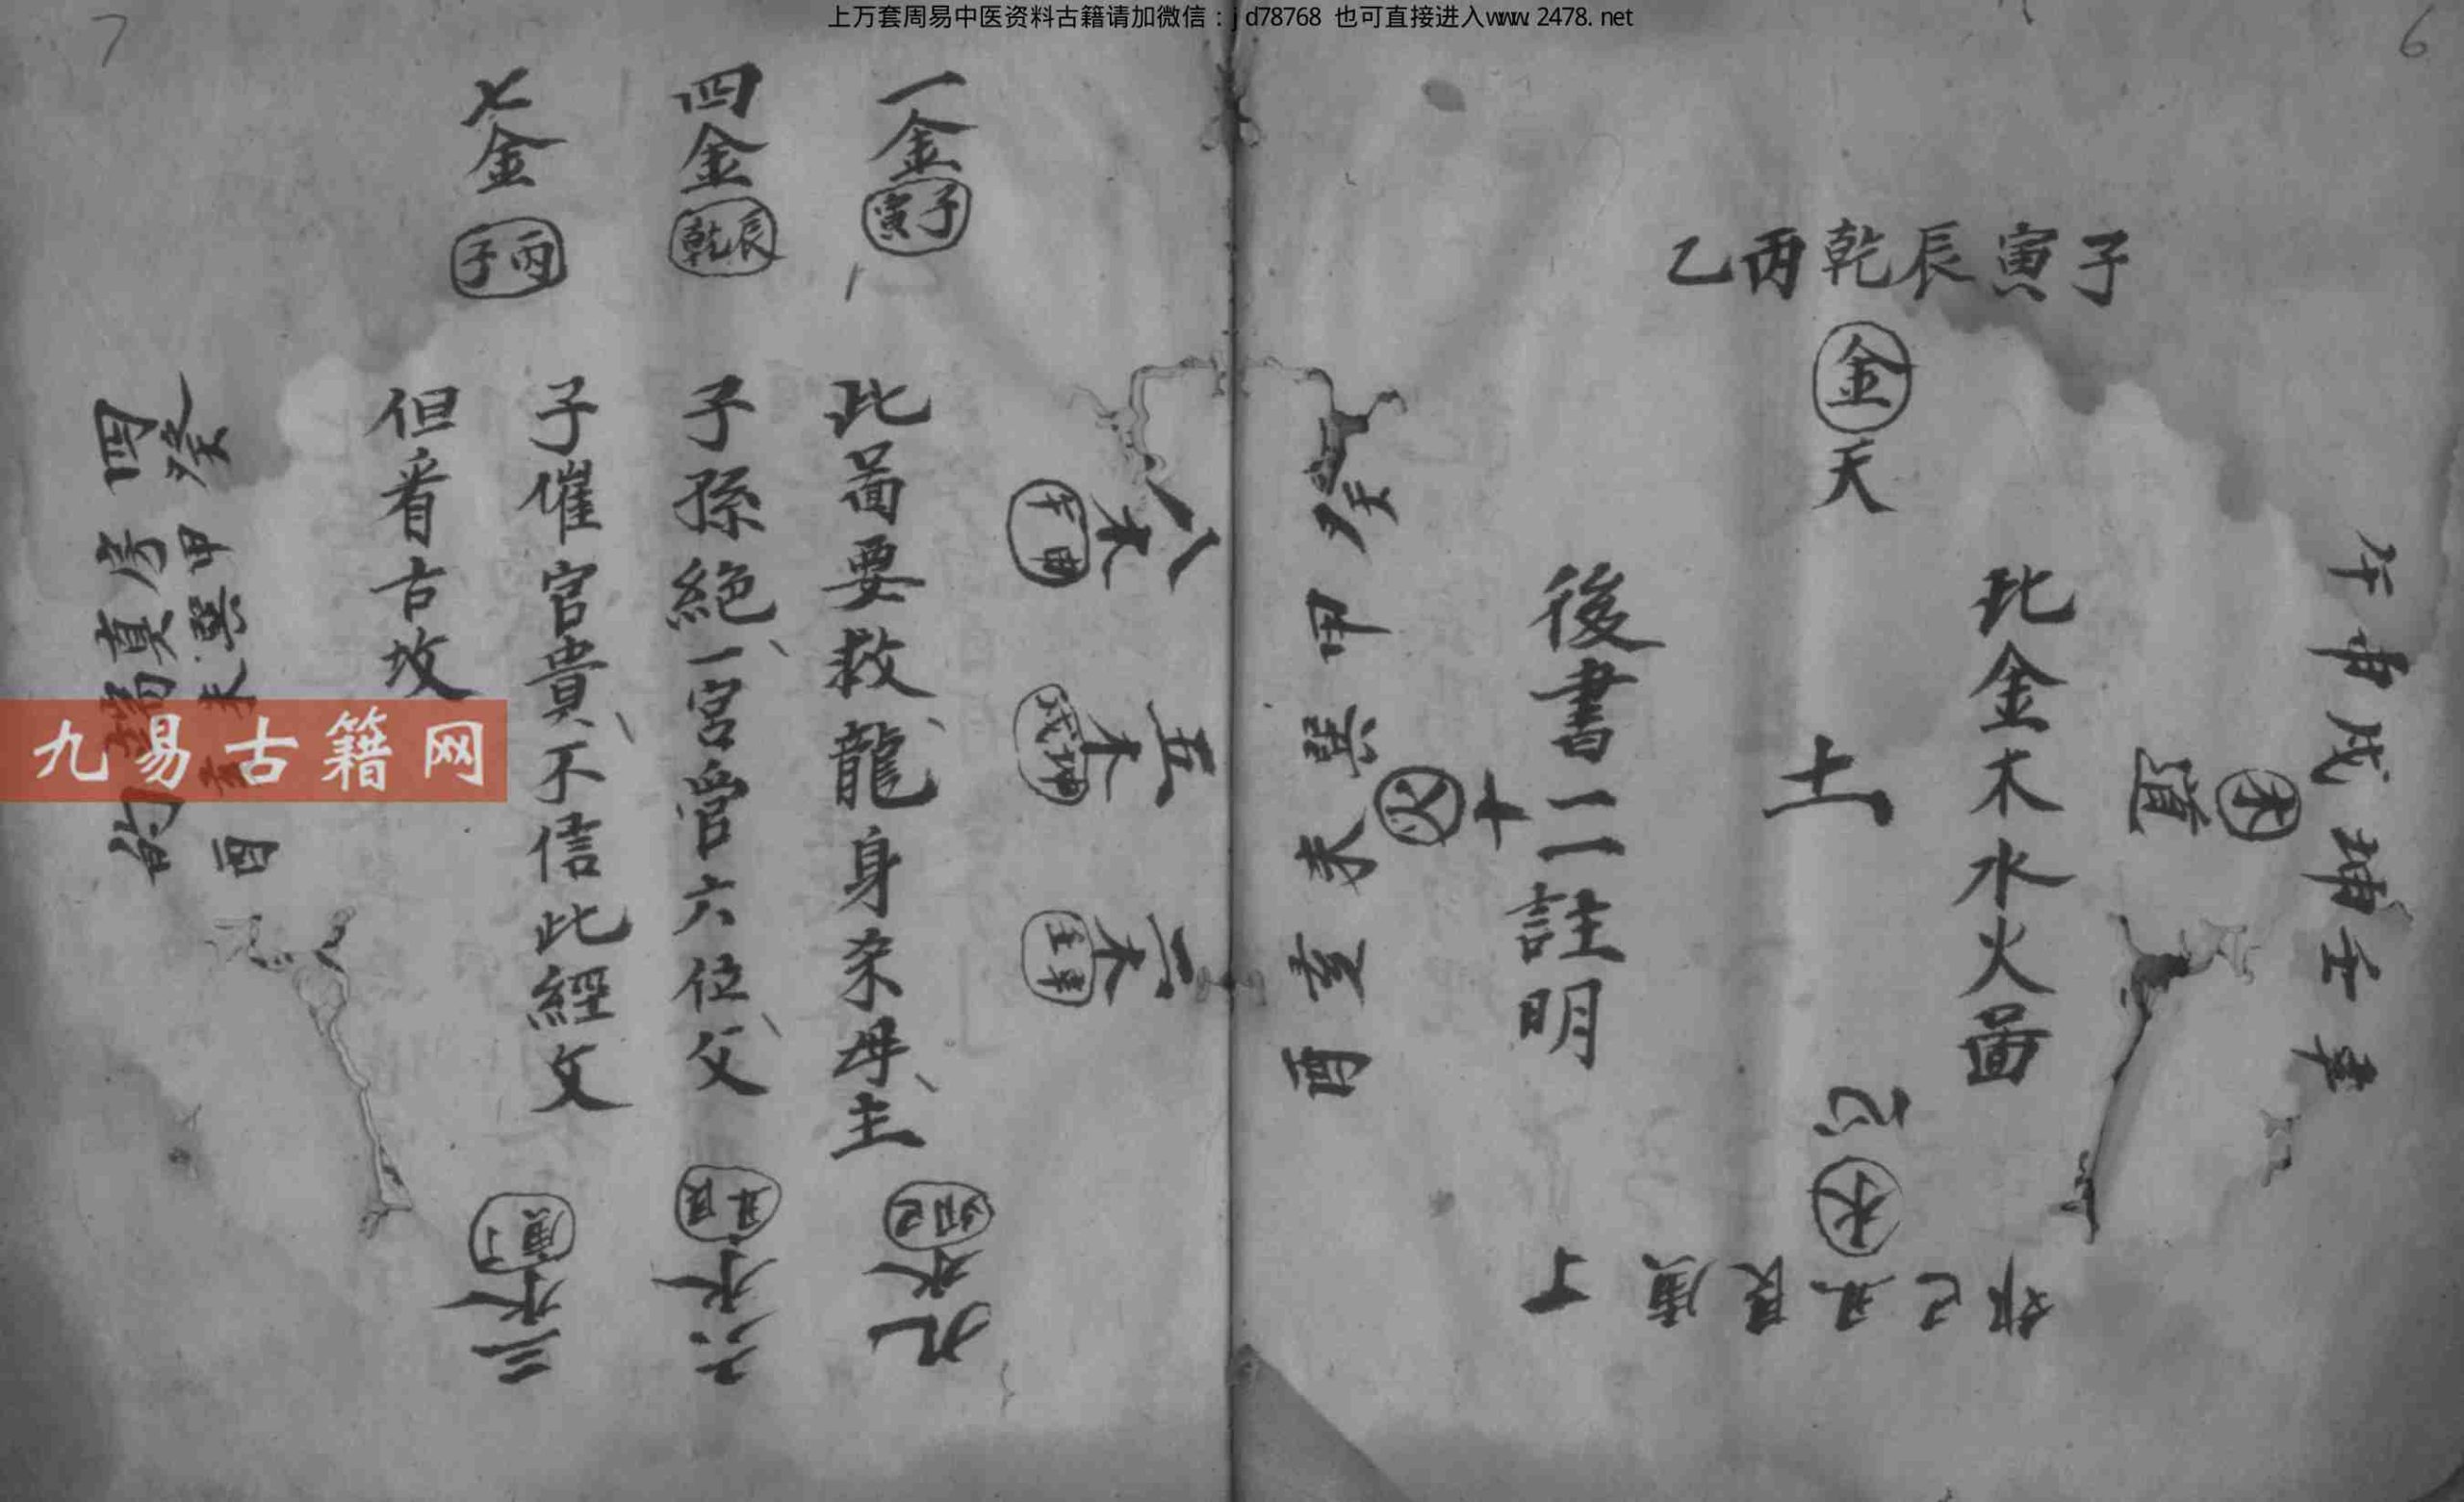 上万套周易中医资料古籍请加微信：jd78768 也可直接进入www.2478.net
6
子寅辰乾丙乙
金
天
午申戌坤壬辛
木
道
此金木水火啚
土
後書二註明
心
水
卯己丑艮庚丁
火
癸甲巽未亥酉
7
一金
子寅
四金
辰乾
七金
丙子
八木
午申
五木
戌坤
二木
壬辛
此啚要救龍身杀毋主
子孫絶一宮管六位父
子催官貴不信此經文
但看古坟
九水
卯己
六水
丑艮
三水
庚丁
癸甲巽未亥酉
四房真
的
九易古籍网